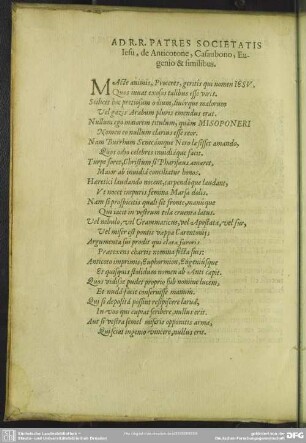 AD R.R. PATRES SOCIETATIS
Iesu, de Anticotone, Casaubono, Eu-
genio & similibus.
MActe animis, Proceres, geritis qui nomen IESV,
Quos iuuat exosos talibus esse viris.
Scilicet hoc pretiosum odium, suisque malorum
Vel gazis Arabum pluris emendus erat.
Nullum ego mirarem titulum, quàm MISOPONERI
Nomen eo nullum clarius esse
Nam Burrhum Senecamque Nero laesisset amando,
Quos odio celebres inuidiáque facit.
Turpe foret, Christum si Pharisæus amaret,
Maior ab inuidiâ conciliatur honos.
Hæretici laudando nocent, carpendóque laudant,
Vt nocet corporis femina Marsa dolis.
Nam si prospiciatis quali sit fronte, manúque
Qui iacit in vestrum tela cruenta latus.
Vel nebulo, vel Grammaticus, vel Apostata, vel fur,
Vel miser est pontis vappa Carentonij:
Argumenta sui prodit qui clara furoris
Prætenens chartis nomina ficta suis:
Anticoto inprimis, Euphormion, Eugeniúsque
Et quisquis stolidum nomen ab Anti capit.
Quos vidisse pudet proprio sub nomine lucem,
Et nudâ facie conseruisse manum.
Qui si depositâ possint resipiscere laruâ,
In vos qui cupiat scribere, nullus erit.
Aut si vestra semel miseris oppinitis arma,
Qui sciat ingenio vincere, nullus erit.